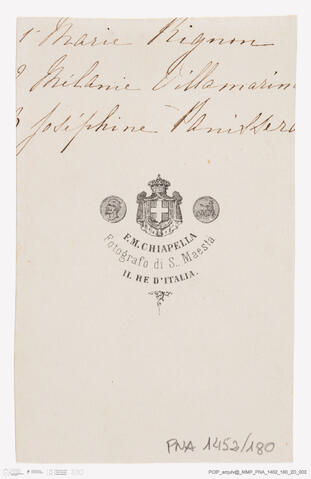 1 Marie Rignon
2 Mélanie Villamarin
3 Joséphine Panissera
F. M. CHIAPELLA
Fotografo di S. Maestà
IL RE D'ITALIA.
PNA 1452/180
POIP_arquivo@_MMP_PNA_1452_180_ZO_002